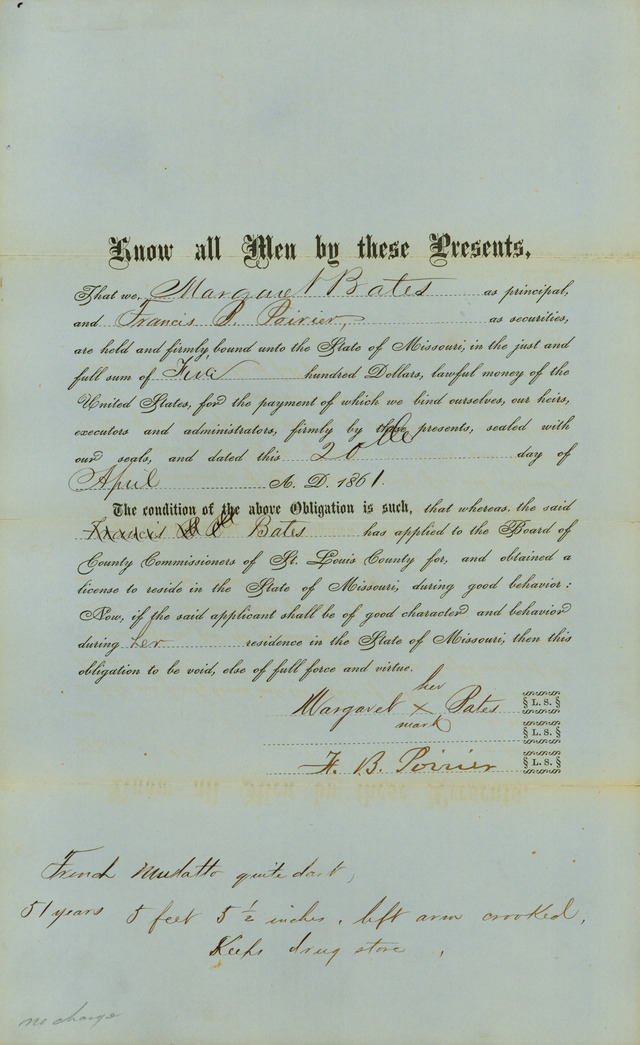 Know all Men by these Presents,
That we, Margaret Bates as principal,
and Francis B. Poirier, as securities,
are held and firmly bound unto the State of Missouri, in the just and
full sum of Five hundred Dollars, lawful money of the
United States, for the payment of which we bind ourselves, our heirs,
executors and administrators, firmly by these presents, sealed with
our seals, and dated this 20th day of
April A. D. 1861.
The condition of the above Obligation is such, that whereas, the said
Francis Bates has applied to the Board of
County Commissioners of St. Louis County for, and obtained a
license to reside in the State of Missouri, during good behavior:
Now, if the said applicant shall be of good character and behavior
during her residence in the State of Missouri, then this
obligation to be void, else of full force and virtue.
her
Margaret X Bates § L. S. §
mark
§ L. S. §
F. B. Poirier § L. S. §
French Mulatto quite dark,
51 years 5 feet 5 1/2 inches, left arm crooked,
Keeps drug store,
no charge